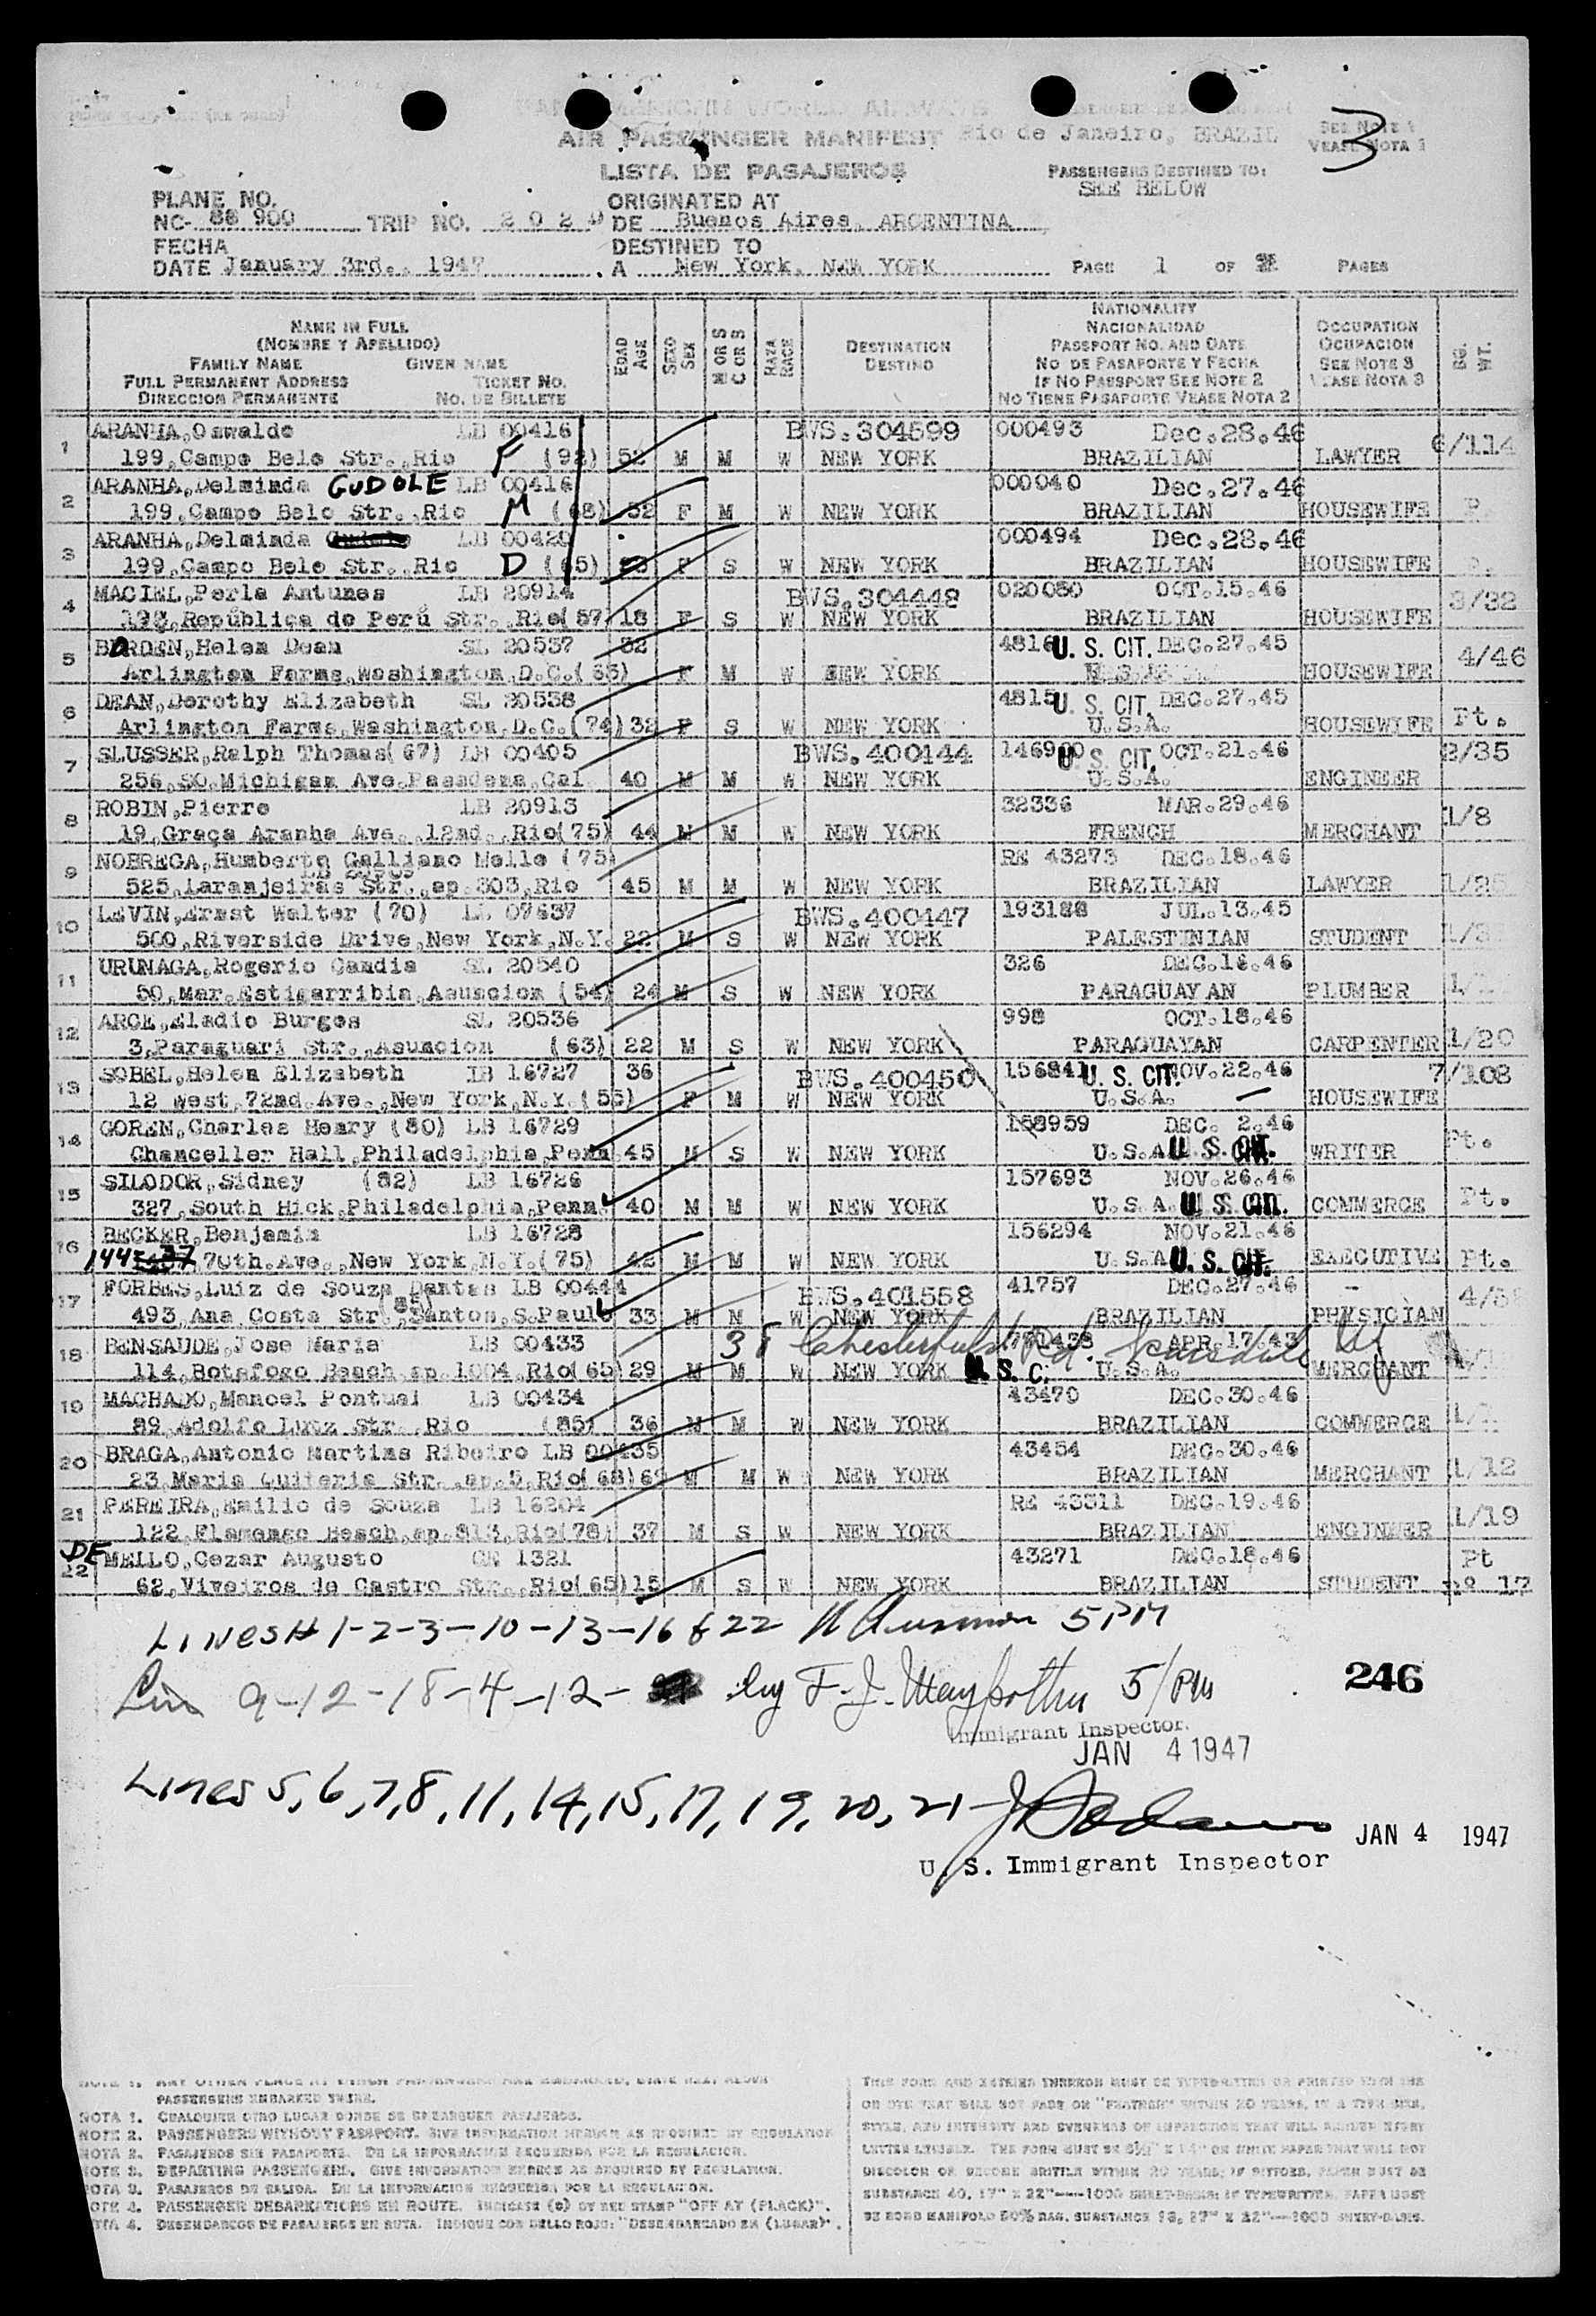 PAN AMERICAN WORLD AIRWAYS
AIR PASSENGER MANIFEST Rio de Janeiro, BRAZIL
SEE NOTE 1
VEASE NOTA 1
3
LISTA DE PASAJEROS
PASSENGERS DESTINED TO:
SEE BELOW
PLANE NO.
NC- 88 900 TRIP NO. 202
ORIGINATED AT
DE Buenos Aires, ARGENTINA
FECHA
DATE January 3rd., 1947
DESTINED TO
A New York, NEW YORK
PAGE 1 OF PAGES
NAME IN FULL
(NOMBRE Y APELLIDO)
FAMILY NAME GIVEN NAME
FULL PERMANENT ADDRESS TICKET NO.
DIRECCION PERMANENTE NO. DE BILLETE
EDAD AGE
SEXO SEX
M OR S
C OR S
RAZA RACE
DESTINATION
DESTINO
NATIONALITY
NACIONALIDAD
PASSPORT NO. AND DATE
NO. DE PASAPORTE Y FECHA
IF NO PASSPORT SEE NOTE 2
NO TIENE PASAPORTE VEASE NOTA 2
OCCUPATION
OCUPACION
SEE NOTE 3
VEASE NOTA 3
BG. WT.
1 ARANHA, Oswaldo LB 00416 BWS.304599 000493 Dec.28.46
199, Campo Belo Str., Rio F (92) 52 M M W NEW YORK BRAZILIAN LAWYER 6/114
2 ARANHA, Delminda GUDOLE LB 00416 000040 Dec.27.46
199, Campo Belo Str., Rio M (68) 52 F M W NEW YORK BRAZILIAN HOUSEWIFE
3 ARANHA, Delminda LB 00420 000494 Dec.28.46
199, Campo Belo Str., Rio D (65) F S W NEW YORK BRAZILIAN HOUSEWIFE
4 MACIEL, Perla Antunes LB 20914 BWS.304448 020080 OCT.15.46 3/32
República do Perú Str., Rio (57) 18 F S W NEW YORK BRAZILIAN HOUSEWIFE
5 BORDEN, Helen Dean SL 20537 32 4816 U. S. CIT. DEC.27.45 4/46
Arlington Farms, Washington, D.C. F M W NEW YORK HOUSEWIFE
6 DEAN, Dorothy Elizabeth SL 20538 4815 U. S. CIT. DEC.27.45 Pt.
Arlington Farms, Washington, D.C. (74) 32 F S W NEW YORK U.S.A. HOUSEWIFE
7 SLUSSER, Ralph Thomas (67) LB 00405 BWS.400144 146900 U. S. CIT. OCT.21.46 2/35
256, SO. Michigan Ave. Pasadena, Cal. 40 M M W NEW YORK U.S.A. ENGINEER
8 ROBIN, Pierre LB 20913 32336 MAR.29.46 1/8
19, Graça Aranha Ave., 12nd., Rio (75) 44 M M W NEW YORK FRENCH MERCHANT
9 NOBREGA, Humberto Galliano Mello (75) RE 43273 DEC.18.46
525, Laranjeiras Str., ap. 303, Rio 45 M M W NEW YORK BRAZILIAN LAWYER
10 LEVIN, Ernst Walter (70) LB 07637 BWS.400447 193188 JUL.13.45
500, Riverside Drive, New York, N.Y. 22 M S W NEW YORK PALESTINIAN STUDENT
11 URUNAGA, Rogerio Candia SL 20540 326 DEC.16.46
50, Mar. Estigarribia, Asuncion (54) 24 M S W NEW YORK PARAGUAYAN PLUMBER
12 ARCE, Eladio Burgos SL 20536 998 OCT.18.46
3, Paraguari Str., Asuncion (63) 22 M S W NEW YORK PARAGUAYAN CARPENTER 1/20
13 SOBEL, Helen Elizabeth LB 16727 36 BWS.400450 156841 U. S. CIT. NOV.22.46 7/108
12 West, 72nd. Ave., New York, N.Y. (55) F M W NEW YORK U.S.A. HOUSEWIFE
14 GOREN, Charles Henry (80) LB 16729 158959 DEC. 2.46 Pt.
Chanceller Hall, Philadelphia, Penn. 45 M S W NEW YORK U.S.A. U. S. CIT. WRITER
15 SILODOR, Sidney (82) LB 16726 157693 NOV.26.46
327, South Hick, Philadelphia, Penn. 40 M M W NEW YORK U.S.A. U. S. CIT. COMMERCE Pt.
16 BECKER, Benjamin LB 16728 156294 NOV.21.46
70th. Ave., New York, N.Y. (75) 42 M M W NEW YORK U.S.A. U. S. CIT. EXECUTIVE Pt.
17 FORBES, Luiz de Souza Dantas LB 00444 BWS.401558 41757 DEC.27.46
493, Ana Costa Str. (85), Santos, S. Paulo 33 M M W NEW YORK BRAZILIAN PHYSICIAN
18 BENSAUDE, Jose Maria LB 00433 38 Chesterfield Rd. Scarsdale NY APR.17/43
114, Botafogo Beach, ap. 1004, Rio (65) 29 M M W NEW YORK U. S. C. U.S.A. MERCHANT
19 MACHADO, Manoel Pontual LB 00434 43470 DEC.30.46
89, Adolfo Lutz Str., Rio (85) 36 M M W NEW YORK BRAZILIAN COMMERCE
20 BRAGA, Antonio Martins Ribeiro LB 00435 43454 DEC.30.46
23, Maria Quiteria Str., ap. 5, Rio (68) M M W NEW YORK BRAZILIAN MERCHANT 1/12
21 PEREIRA, Emilio de Souza LB 16204 RE 43311 DEC.19.46
122, Flamengo Beach, ap. 813, Rio (78) 37 M S W NEW YORK BRAZILIAN ENGINEER 1/19
DE
22 MELLO, Cezar Augusto 1321 43271 DEC.18.46 Pt
62, Viveiros de Castro Str., Rio (65) 15 M S W NEW YORK BRAZILIAN STUDENT nº 17
Lines # 1-2-3-10-13-16 & 22 5 PM
Lin 9-12-18-4-12- by F. J. 5/PM
246
Immigrant Inspector.
JAN 4 1947
Lines 5, 6, 7, 8, 11, 14, 15, 17, 19, 20, 21
JAN 4 1947
U. S. Immigrant Inspector
PASSENGERS EMBARKED THERE.
NOTA 1. CUALQUIER OTRO LUGAR DONDE SE EMBARQUEN PASAJEROS.
NOTE 2. PASSENGERS WITHOUT PASSPORT. GIVE INFORMATION HEREON AS REQUIRED BY REGULATION
NOTA 2. PASAJEROS SIN PASAPORTE. DE LA INFORMACION REQUERIDA POR LA REGULACION.
NOTE 3. DEPARTING PASSENGERS. GIVE INFORMATION HEREON AS REQUIRED BY REGULATION.
NOTA 3. PASAJEROS DE SALIDA. DE LA INFORMACION REQUERIDA POR LA REGULACION.
NOTE 4. PASSENGER DEBARKATIONS EN ROUTE. INDICATE (@) BY RED STAMP "OFF AT (PLACE)".
NOTA 4. DESEMBARCOS DE PASAJEROS EN RUTA. INDIQUE CON SELLO ROJO: "DESEMBARCADO EN (LUGAR)".
THIS FORM AND ENTRIES THEREON MUST BE TYPEWRITTEN OR PRINTED WITH INK
OR DYE THAT WILL NOT FADE OR "FEATHER" WITHIN 20 YEARS, IN A TYPE SIZE,
STYLE, AND INTENSITY AND EVENNESS OF IMPRESSION THAT WILL RENDER EVERY
LETTER LEGIBLE. THE FORM MUST BE 8½" X 14" ON WHITE PAPER THAT WILL NOT
DISCOLOR OR BECOME BRITTLE WITHIN 20 YEARS; IF BITTOES, PAPER MUST BE
SUBSTANCE 40, 17" X 22"—1000 SHEET-BASIS; IF TYPEWRITTEN, PAPER MUST
BE BOND MANIFOLD 50% RAG, SUBSTANCE 16, 17" X 22"—1000 SHEET-BASIS.